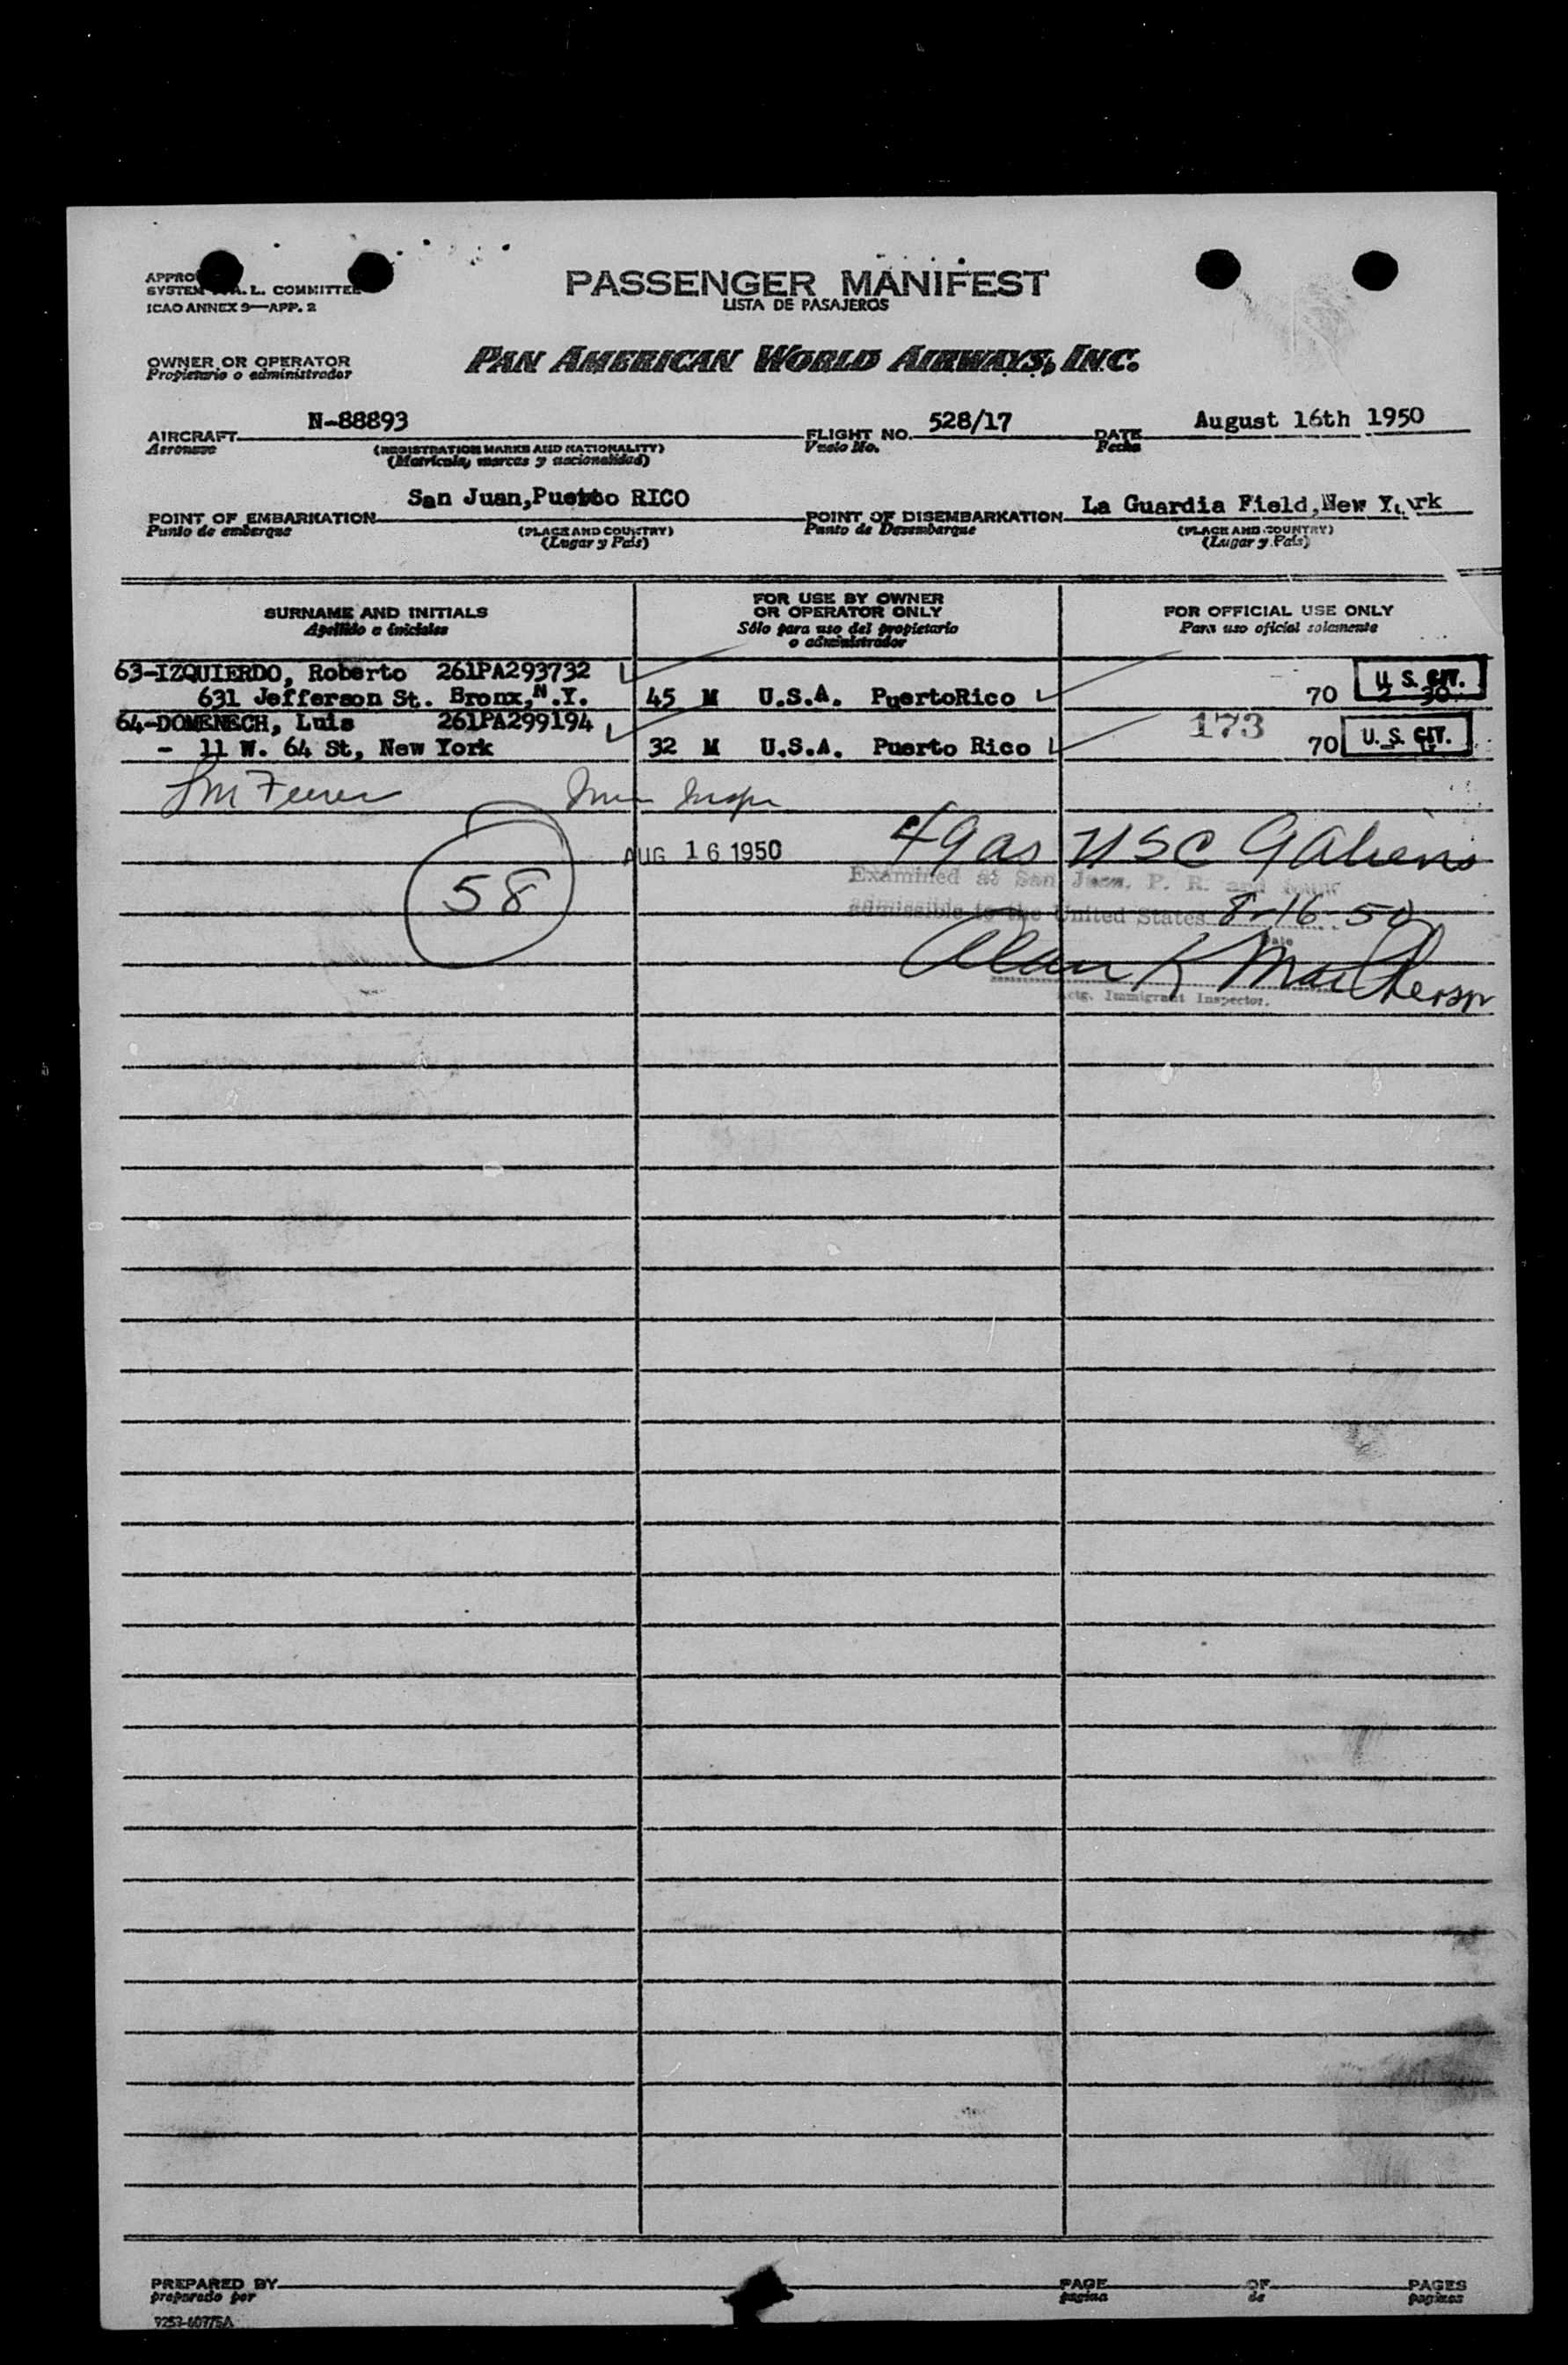 ICAO ANNEX 9—APP. 2
PASSENGER MANIFEST
LISTA DE PASAJEROS
OWNER OR OPERATOR
Propietario o administrador
PAN AMERICAN WORLD AIRWAYS, INC.
AIRCRAFT N-88893 FLIGHT NO. 528/17 DATE August 16th 1950
Aeronave (REGISTRATION MARKS AND NATIONALITY) Vuelo No. Fecha
(Matricula, marcas y nacionalidad)
POINT OF EMBARKATION San Juan, RICO POINT OF DISEMBARKATION La Guardia Field, New York
Punto de embarque (PLACE AND COUNTRY) Punto de Desembarque (PLACE AND COUNTRY)
(Lugar y País) (Lugar y País)
SURNAME AND INITIALS
Apellido e iniciales
FOR USE BY OWNER
OR OPERATOR ONLY
Sólo para uso del propietario
o administrador
FOR OFFICIAL USE ONLY
Para uso oficial solamente
63-IZQUIERDO, Roberto 261PA293732
631 Jefferson St. Bronx, N.Y. 45 M U.S.A. PuertoRico 70 U. S. CIT.
64-DOMENECH, Luis 261PA299194 173
- 11 W. 64 St, New York 32 M U.S.A. Puerto Rico 70 U. S. CIT.
AUG 16 1950 49 as USC 9 Aliens
58
Examined at San Juan, P. R. and found
admissible to the United States 8-16-50
Date
Alan K
Actg. Immigrant Inspector.
PREPARED BY PAGE OF PAGES
preparado por pagina de paginas